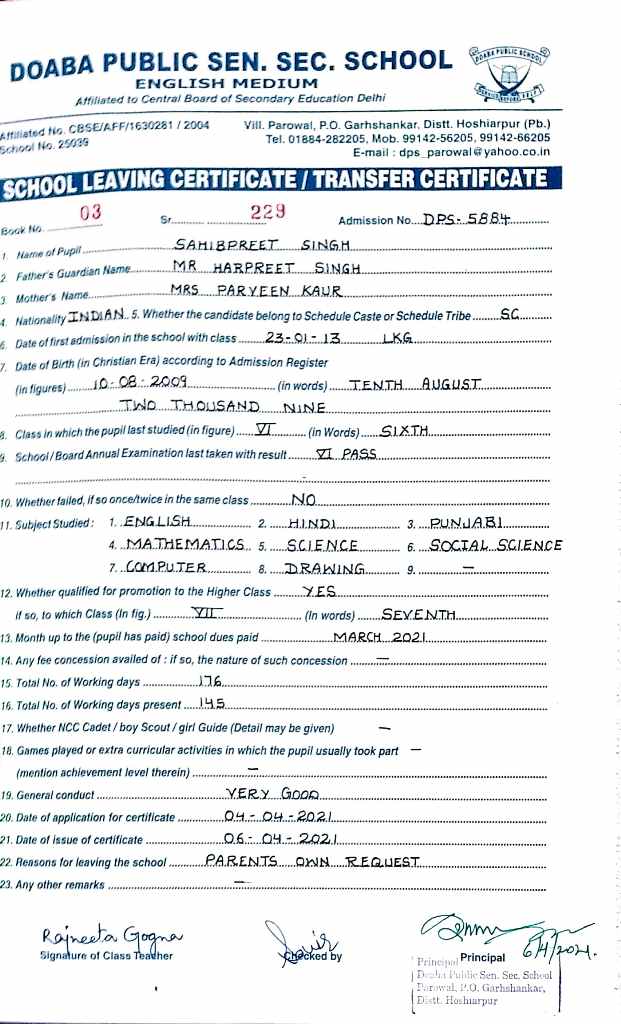 DOABA PUBLIC SEN. SEC. SCHOOL
ENGLISH MEDIUM
Affiliated to Central Board of Secondary Education Delhi
DOABA PUBLIC SCHOOL
Affiliated No. CBSE/AFF/1630281 / 2004
School No. 25039
Vill. Parowal, P.O. Garhshankar, Distt. Hoshiarpur (Pb.)
Tel. 01884-282205, Mob. 99142-56205, 99142-66205
E-mail : dps_parowal@yahoo.co.in
SCHOOL LEAVING CERTIFICATE / TRANSFER CERTIFICATE
Book No. 03 Sr. 229 Admission No. DPS-5884
1. Name of Pupil SAHIBPREET SINGH
2. Father's Guardian Name MR HARPREET SINGH
3. Mother's Name MRS PARVEEN KAUR
4. Nationality INDIAN 5. Whether the candidate belong to Schedule Caste or Schedule Tribe SC
6. Date of first admission in the school with class 23-01-13 LKG
7. Date of Birth (in Christian Era) according to Admission Register
(in figures) 10-08-2009 (in words) TENTH AUGUST
TWO THOUSAND NINE
8. Class in which the pupil last studied (in figure) VI (in Words) SIXTH
9. School / Board Annual Examination last taken with result VI PASS
10. Whether failed, if so once/twice in the same class NO
11. Subject Studied : 1. ENGLISH 2. HINDI 3. PUNJABI
4. MATHEMATICS 5. SCIENCE 6. SOCIAL SCIENCE
7. COMPUTER 8. DRAWING 9. —
12. Whether qualified for promotion to the Higher Class YES
if so, to which Class (In fig.) VII (In words) SEVENTH
13. Month up to the (pupil has paid) school dues paid MARCH 2021
14. Any fee concession availed of : if so, the nature of such concession —
15. Total No. of Working days 176
16. Total No. of Working days present 145
17. Whether NCC Cadet / boy Scout / girl Guide (Detail may be given) —
18. Games played or extra curricular activities in which the pupil usually took part —
(mention achievement level therein) —
19. General conduct VERY GOOD
20. Date of application for certificate 04-04-2021
21. Date of issue of certificate 06-04-2021
22. Reasons for leaving the school PARENTS OWN REQUEST
23. Any other remarks —
Rajneeta Gogna
Signature of Class Teacher
Checked by
Principal 6/4/2021.
Principal
Doaba Public Sen. Sec. School
Parowal, P.O. Garhshankar,
Distt. Hoshiarpur